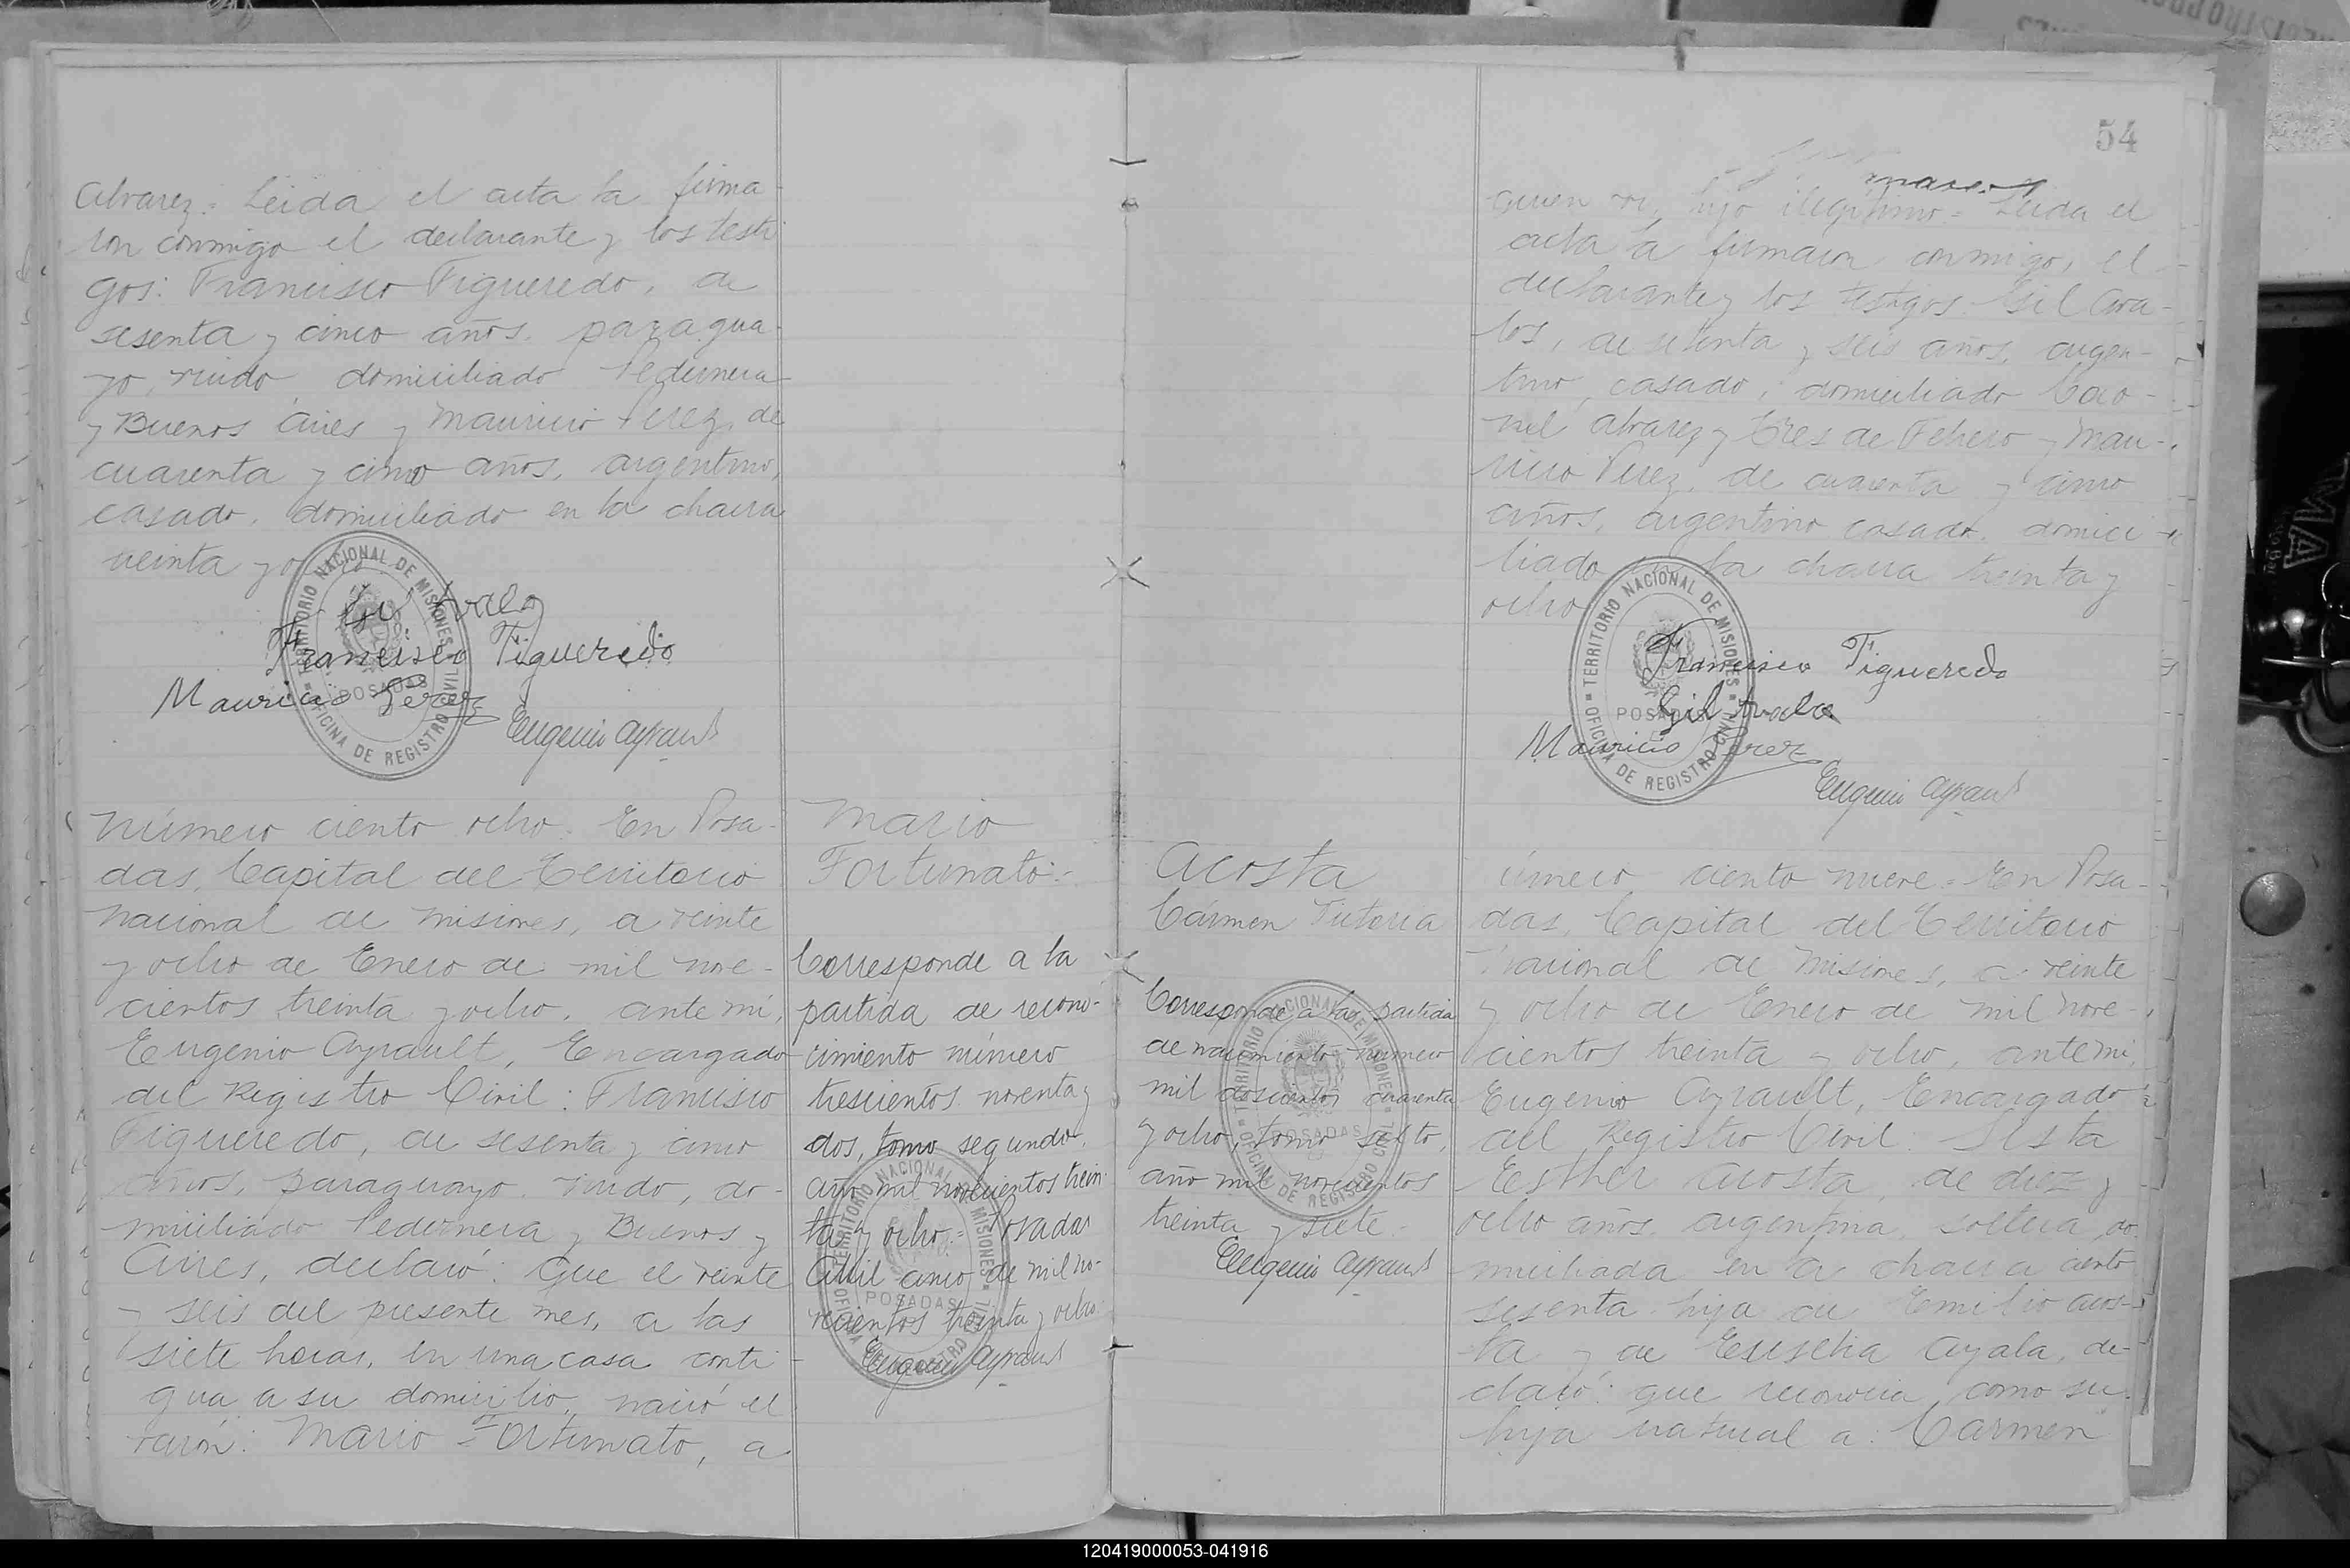 Alvarez.= Leida el acta la firma-
ron conmigo el declarante y los testi-
gos: Francisco Figueredo, de
sesenta y cinco años, paragua-
yo, viudo, domiciliado Pedernera
y Buenos Aires y Mauricio Perez, de
cuarenta y cinco años, argentino,
casado, domiciliado en la chacra
treinta y ocho
Gil Avalo
Francisco Figueredo
Mauricio Perez
Eugenio Ayrault
TERRITORIO NACIONAL DE MISIONES
POSADAS
OFICINA DE REGISTRO CIVIL
Número ciento ocho. En Posa-
das, Capital del Territorio
Nacional de Misiones, a veinte
y ocho de Enero de mil nove-
cientos treinta y ocho, ante mí,
Eugenio Ayrault, Encargado
del Registro Civil: Francisco
Figueredo, de sesenta y cinco
años, paraguayo, viudo, do-
miciliado Pedernera y Buenos y
Aires, declaró: Que el veinte
y seis del presente mes, a las
siete horas, en una casa conti-
gua a su domicilio, nació el
varón: Mario Fortunato, a
Mario
Fortunato.=
Corresponde a la
partida de recono-
cimiento número
trescientos noventa y
dos, tomo segundo,
año mil novecientos trein-
ta y ocho.= Posadas
Abril cinco de mil no-
vecientos treinta y ocho.
Eugenio Ayrault
TERRITORIO NACIONAL DE MISIONES
POSADAS
OFICINA DE REGISTRO CIVIL
54
quien vi, hijo ilegítimo.= Leida el
acta la firmaron conmigo, el
declarante y los testigos Gil Ava-
los, de setenta y seis años, argen-
tino, casado, domiciliado Coro-
nel Alvarez y Tres de Febrero y Mau-
ricio Perez, de cuarenta y cinco
años, argentino casado, domici-
liado en la chacra treinta y
ocho
Francisco Figueredo
Gil Avalo
Mauricio Perez
Eugenio Ayrault
TERRITORIO NACIONAL DE MISIONES
POSADAS
OFICINA DE REGISTRO CIVIL
Acosta
Cármen Victoria
Corresponde a la partida
de nacimiento número
mil doscientos cuarenta
y ocho, tomo sexto,
año mil novecientos
treinta y siete.
Eugenio Ayrault
TERRITORIO NACIONAL DE MISIONES
POSADAS
OFICINA DE REGISTRO CIVIL
úmero ciento nueve.= En Posa-
das, Capital del Territorio
Nacional de Misiones, a veinte
y ocho de Enero de mil nove-
cientos treinta y ocho, ante mi,
Eugenio Ayrault, Encargado
del Registro Civil. Sista
Esther Acosta, de diez y
ocho años, argentina, soltera, do-
miciliada en la chacra ciento
sesenta hija de Emilio Acos-
ta y de Eusebia Ayala, de-
claró: que reconocia como su
hija natural a: Carmen
120419000053-041916